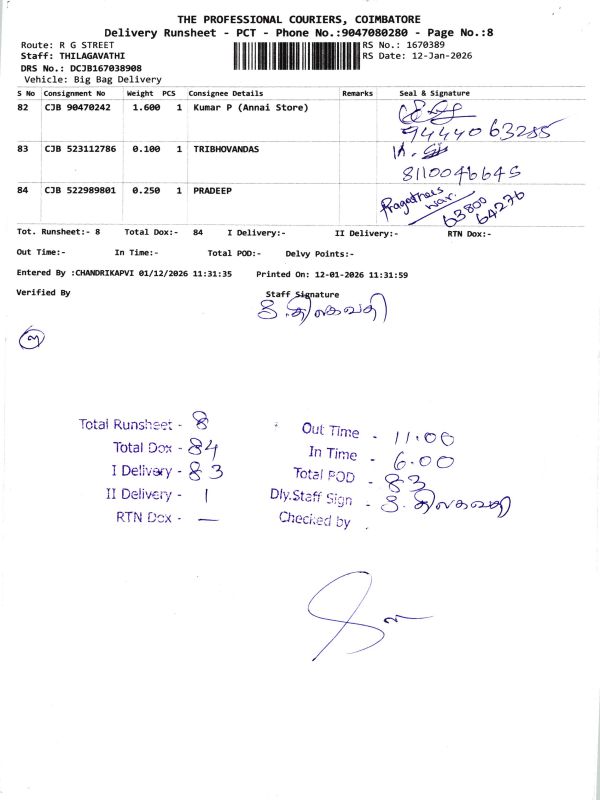 THE PROFESSIONAL COURIERS, COIMBATORE
Delivery Runsheet - PCT - Phone No.:9047080280 - Page No.:8
Route: R G STREET RS No.: 1670389
Staff: THILAGAVATHI RS Date: 12-Jan-2026
DRS No.: DCJB167038908
Vehicle: Big Bag Delivery
S No Consignment No Weight PCS Consignee Details Remarks Seal & Signature
82 CJB 90470242 1.600 1 Kumar P (Annai Store)
9444063285
83 CJB 523112786 0.100 1 TRIBHOVANDAS
8110046645
84 CJB 522989801 0.250 1 PRADEEP
63800
64276
Tot. Runsheet:- 8 Total Dox:- 84 I Delivery:- II Delivery:- RTN Dox:-
Out Time:- In Time:- Total POD:- Delvy Points:-
Entered By :CHANDRIKAPVI 01/12/2026 11:31:35 Printed On: 12-01-2026 11:31:59
Verified By Staff Signature
தி.திலகவதி
Total Runsheet - 8 Out Time - 11.00
Total Dox - 84 In Time - 6.00
I Delivery - 83 Total POD - 83
II Delivery - 1 Dly.Staff Sign - தி.திலகவதி
RTN Dox - — Checked by .